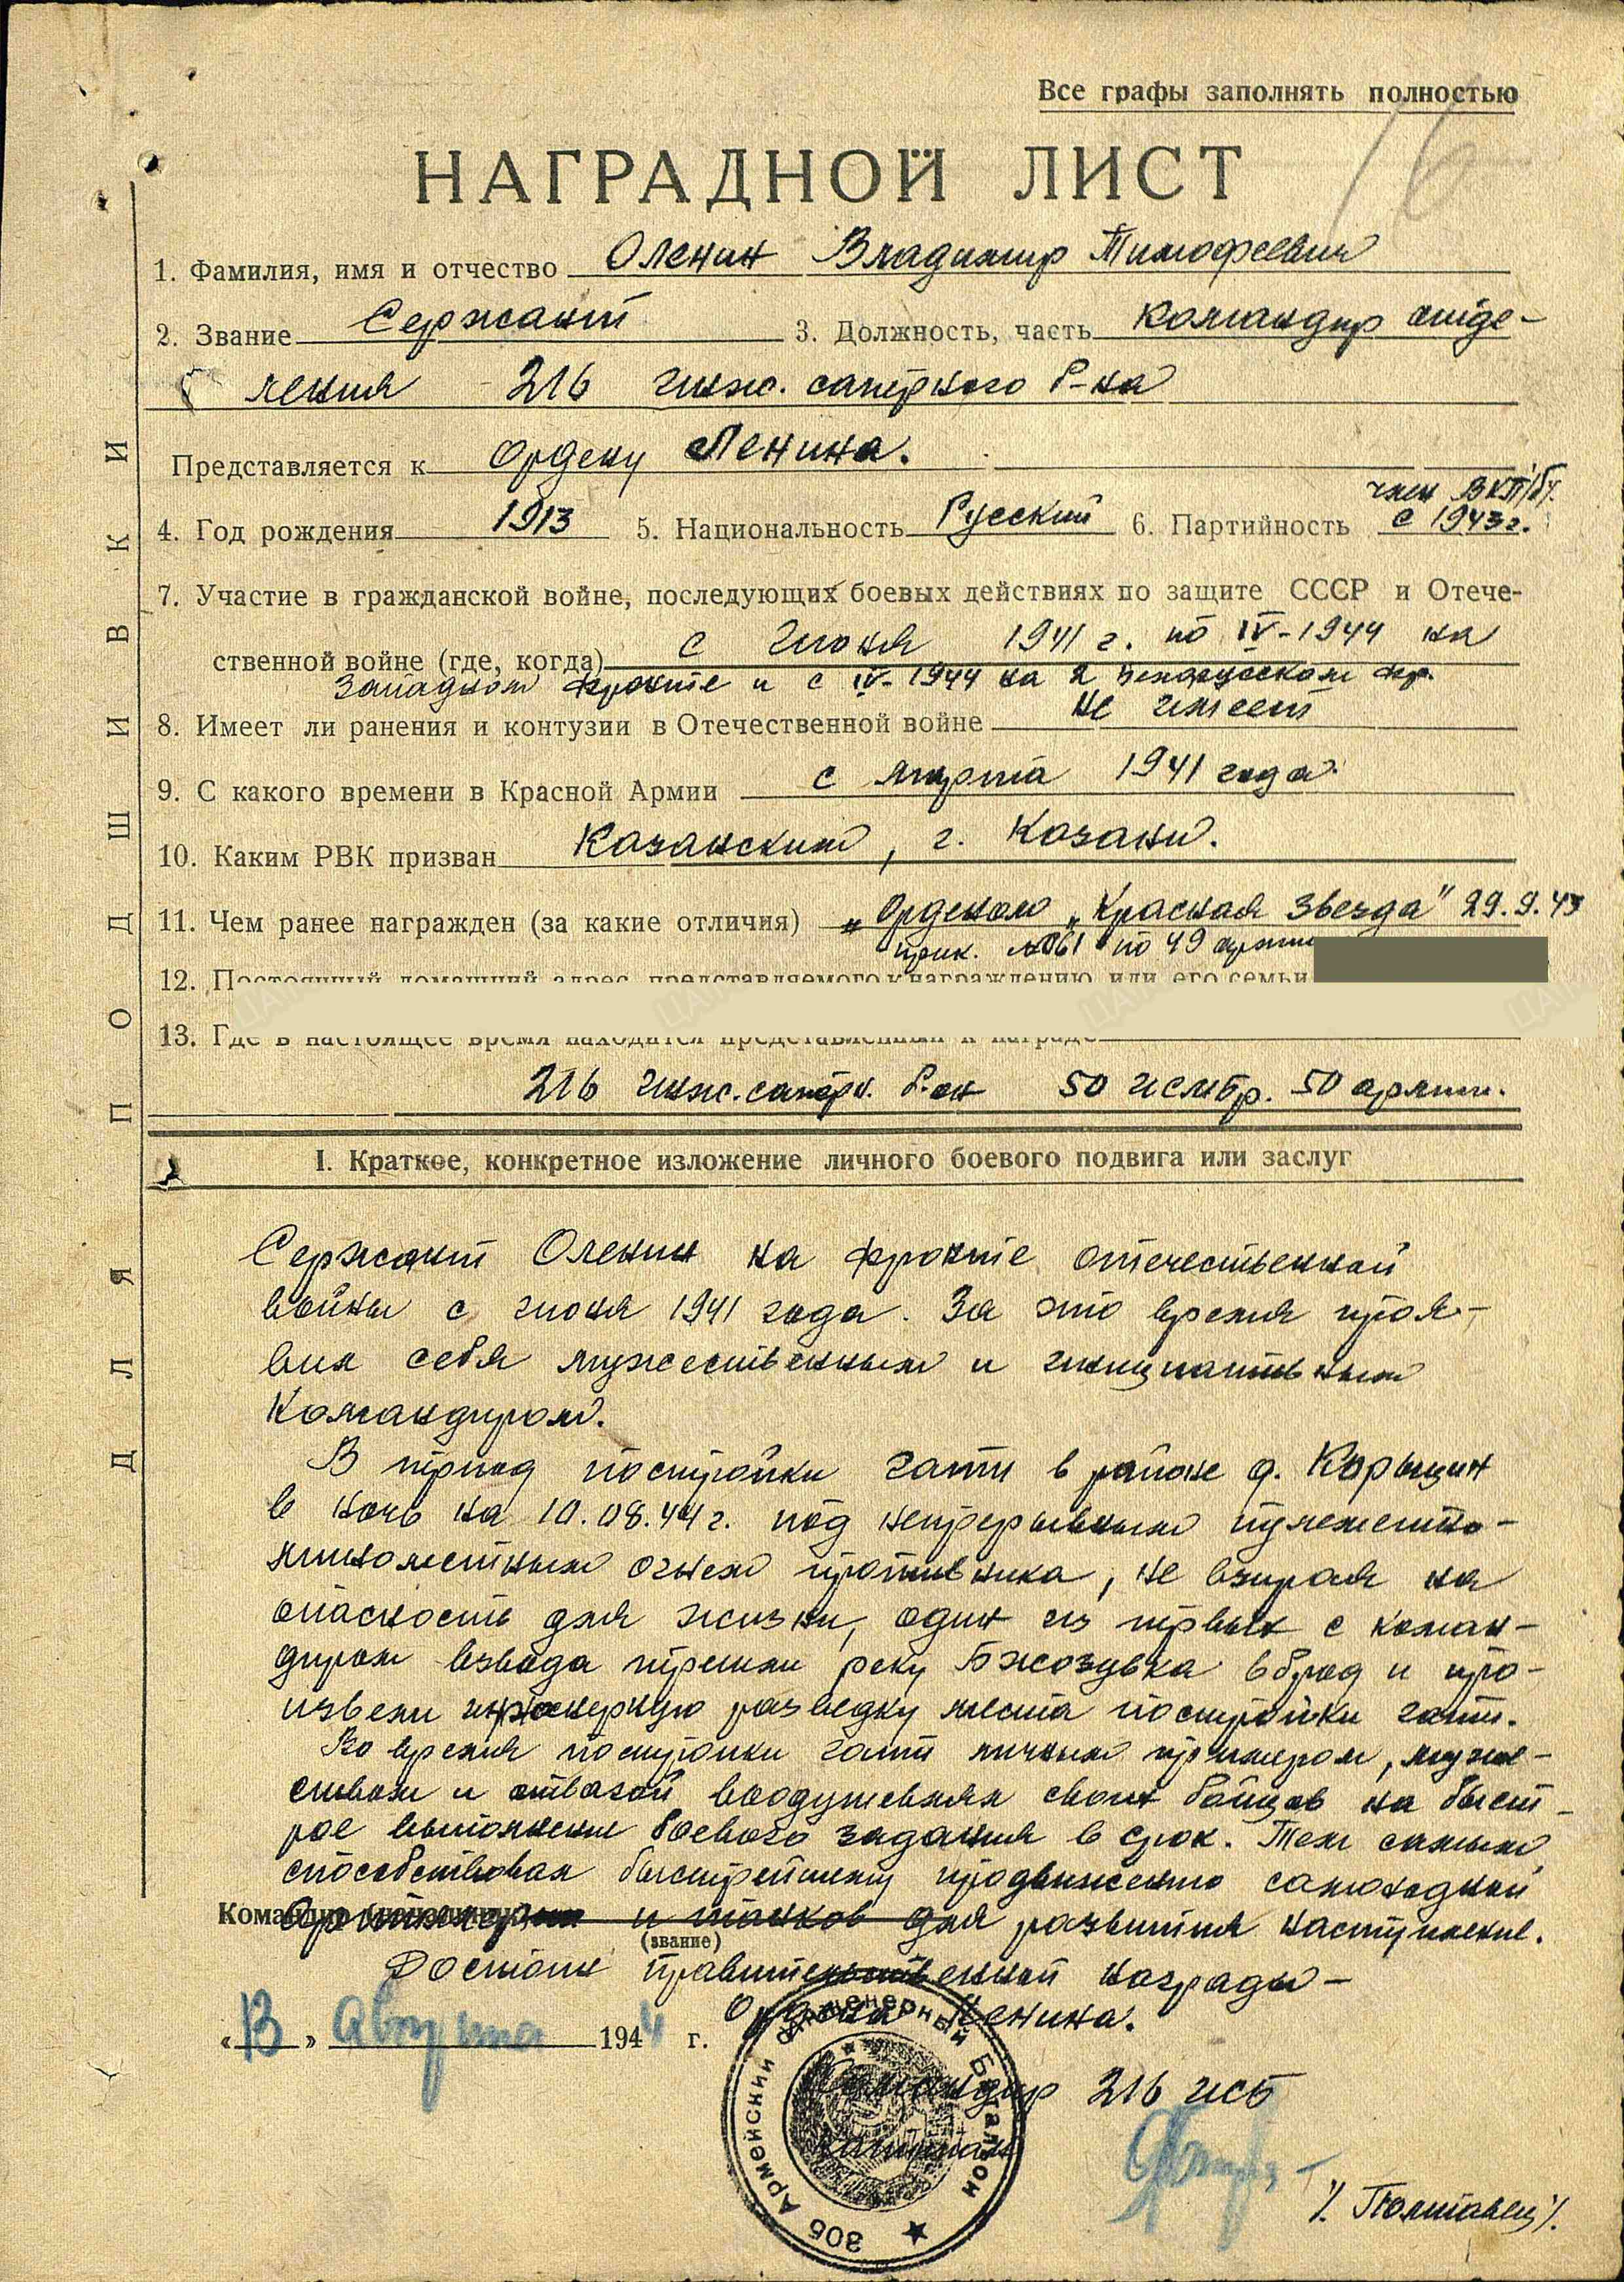 Все графы заполнять полностью
16
НАГРАДНОЙ ЛИСТ
1. Фамилия, имя и отчество Оленин Владимир Тимофеевич
2. Звание Сержант 3. Должность, часть командир отде-
ления - 216 инж. сапёрного б-на
Представляется к Ордену Ленина.
член ВКП/б/.
4. Год рождения 1913 5. Национальность Русский 6. Партийность с 1943 г.
7. Участие в гражданской войне, последующих боевых действиях по защите СССР и Отече-
ственной войне (где, когда) с июня 1941 г. по IV-1944 на
Западном фронте и с IV-1944 на 2 Белорусском фр.
8. Имеет ли ранения и контузии в Отечественной войне не имеет
9. С какого времени в Красной Армии с марта 1941 года.
10. Каким РВК призван Казанским, г. Казани.
11. Чем ранее награжден (за какие отличия) „Орденом „Красная Звезда" 29.9.43
прик. №061 по 49 армии
12. Постоянный домашний адрес представляемого к награждению или его семьи
13. Где в настоящее время находится представленный к награде
216 инж. сапёрн. б-он 50 исмбр. 50 армии.
I. Краткое, конкретное изложение личного боевого подвига или заслуг
Сержант Оленин на фронте отечественной
войны с июня 1941 года. За это время проя-
вил себя мужественным и инициативным
Командиром.
В период постройки гати в районе д. Корыцин
в ночь на 10.08.44 г. под непрерывным пулеметно-
минометным огнем противника, не взирая на
опасность для жизни, один из первых с коман-
диром взвода перешли реку Бжозувка вброд и про-
извели инженерную разведку места постройки гати.
Во время постройки гати личным примером, муже-
ством и отвагой воодушевлял своих бойцов на быст-
рое выполнение боевого задания в срок. Тем самым
способствовал быстрейшему продвижению самоходной
артиллерии и танков для развития наступления.
(звание)
Достоин правительственной награды -
Ордена Ленина.
«13» августа 1944 г.
Командир 216 исб
капитан
/. Полтавец/.
306 Армейский Инженерный Батальон
ДЛЯ ПОДШИВКИ